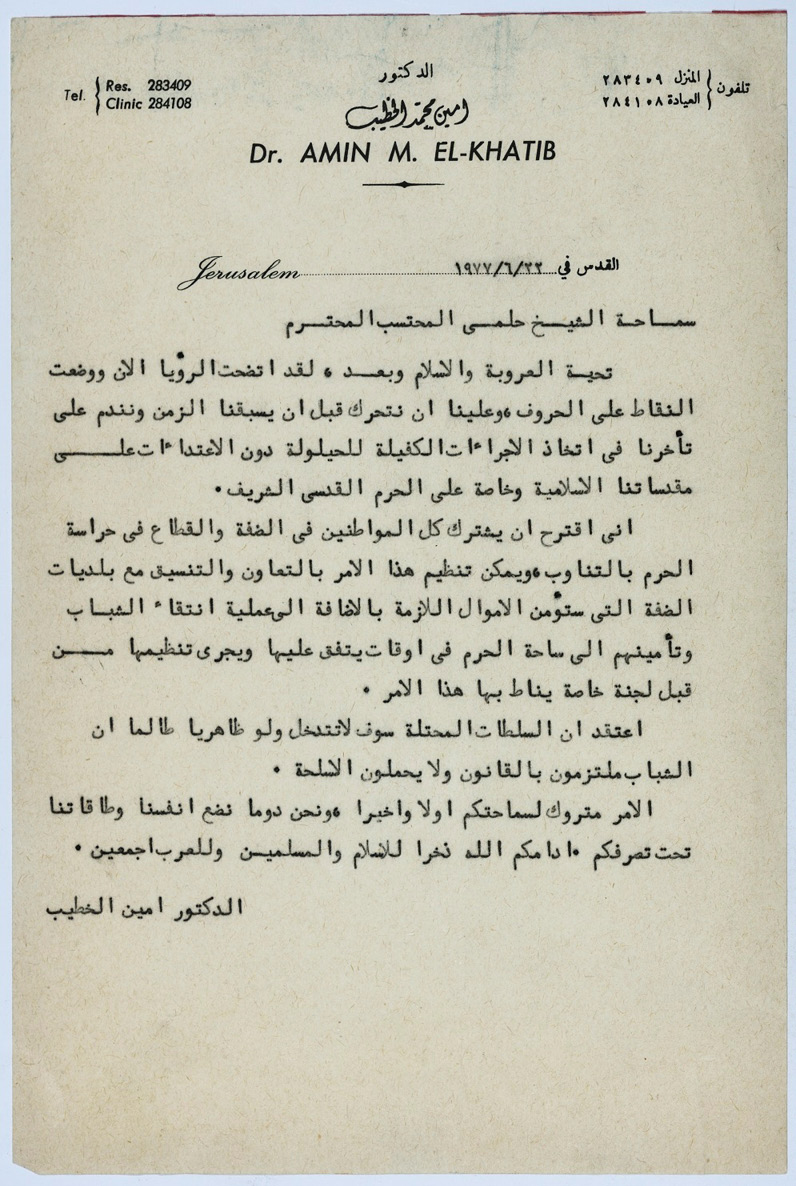 Tel. Res. 283409
Clinic 284108
الدكتور
امين محمد الخطيب
Dr. AMIN M. EL-KHATIB
تلفون المنزل ٢٨٣٤٠٩
العيادة ٢٨٤١٠٨
Jerusalem القدس في ١٩٧٧/٦/٢٢
سماحة الشيخ حلمى المحتسب المحترم
تحية العروبة والاسلام وبعد ، لقد اتضحت الرؤيا الان ووضعت
النقاط على الحروف ،وعلينا ان نتحرك قبل ان يسبقنا الزمن ونندم على
تأخرنا فى اتخاذ الاجراءات الكفيلة للحيلولة دون الاعتداءات على
مقدساتنا الاسلامية وخاصة على الحرم القدسى الشريف.
انى اقترح ان يشترك كل المواطنين فى الضفة والقطاع فى حراسة
الحرم بالتناوب ،ويمكن تنظيم هذا الامر بالتعاون والتنسيق مع بلديات
الضفة التى ستؤمن الاموال اللازمة بالاضافة الى عملية انتقاء الشباب
وتأمينهم الى ساحة الحرم فى اوقات يتفق عليها ويجرى تنظيمها من
قبل لجنة خاصة يناط بها هذا الامر .
اعتقد ان السلطات المحتلة سوف لاتتدخل ولو ظاهريا طالما ان
الشباب ملتزمون بالقانون ولا يحملون الاسلحة .
الامر متروك لسماحتكم اولا واخيرا ،ونحن دوما نضع انفسنا وطاقاتنا
تحت تصرفكم .ادامكم الله ذخرا للاسلام والمسلمين وللعرب اجمعين .
الدكتور امين الخطيب